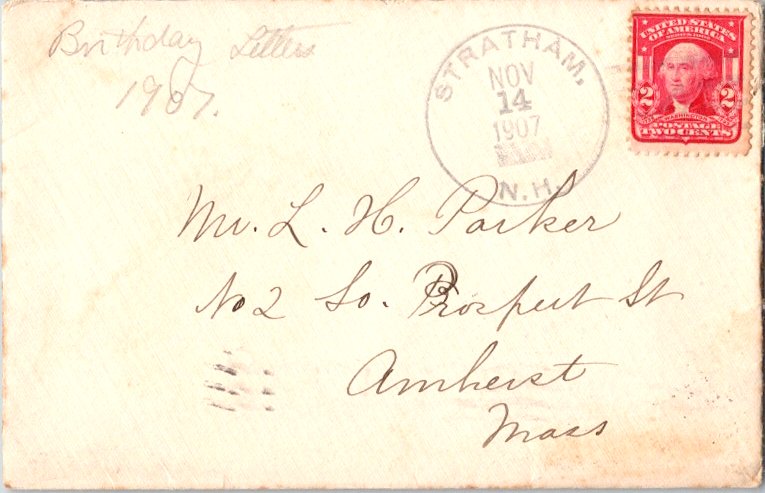 Birthday Letters
1907.
STRATHAM,
NOV
14
1907
N.H.
UNITED STATES
OF AMERICA
2 2
WASHINGTON
POSTAGE
TWO CENTS
Mr. L. H. Parker
No 2 So. Prospect St
Amherst
Mass